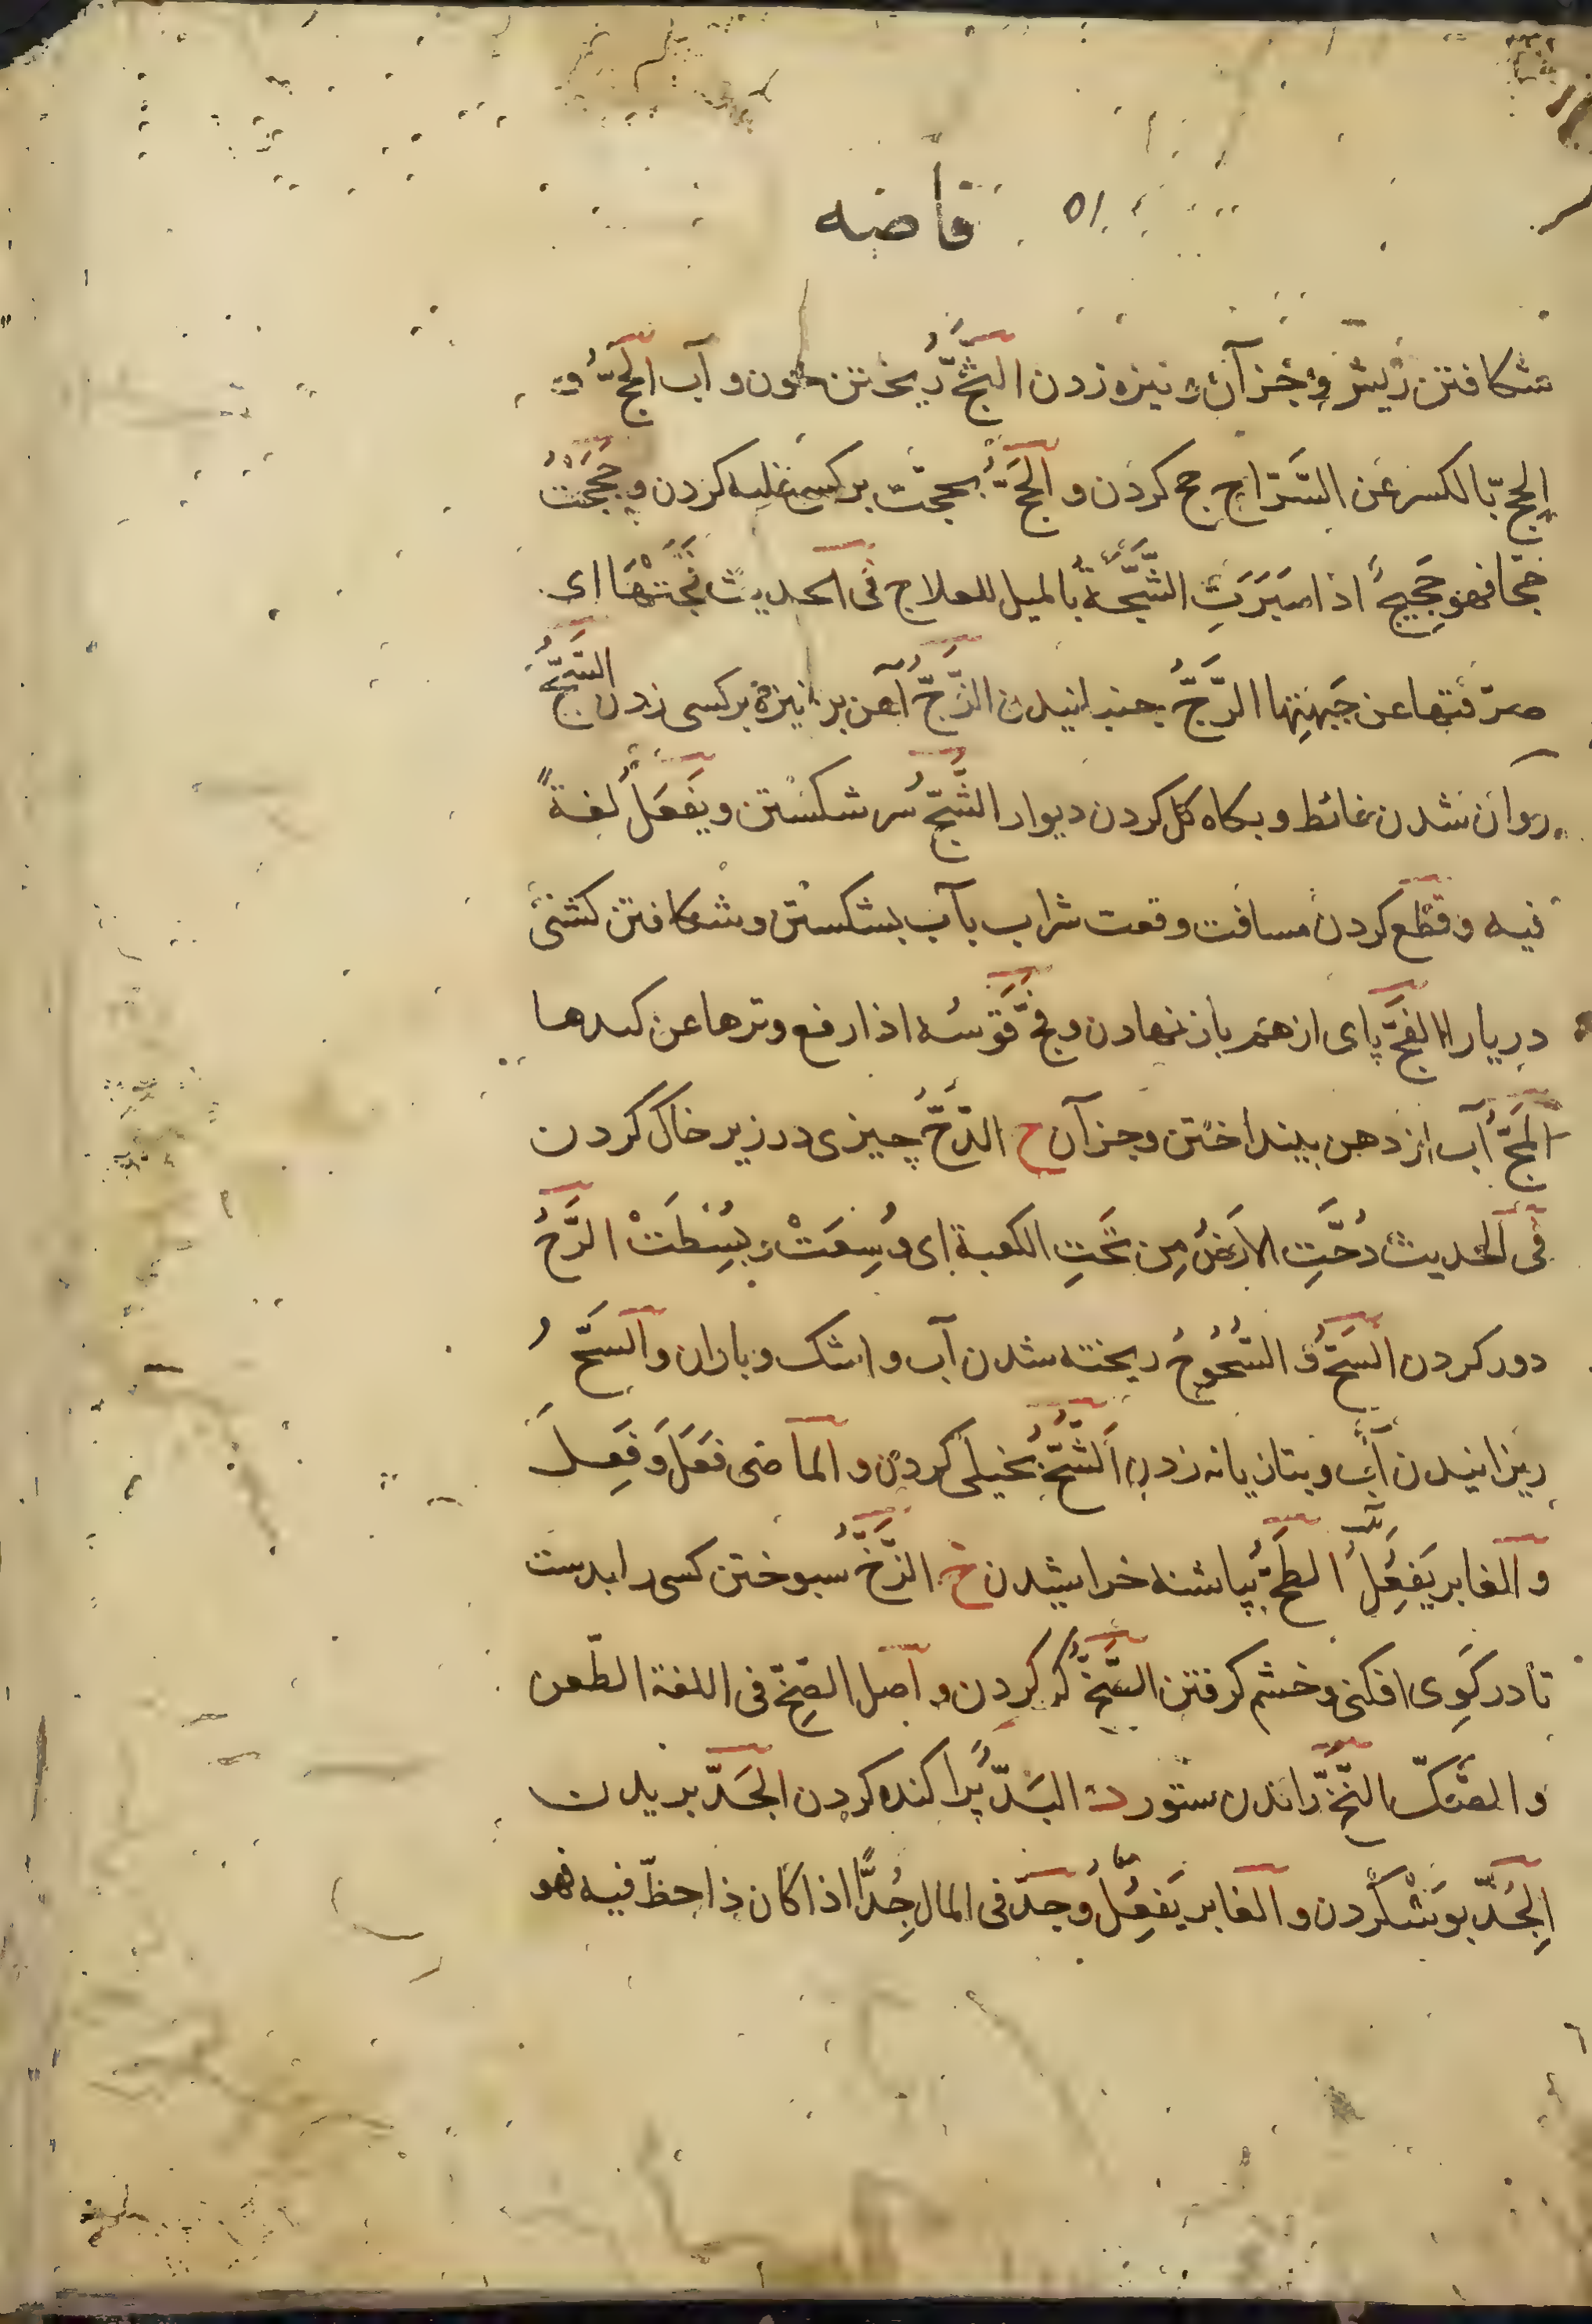 ۵۱ قاضه
شکافتن ریش و جز آن و نیزه زدن الثَّجُّ ریختن خون و آب الحَجُّ و
الحِجّ بالکسر عن السَّرّاج حج کردن و الحَجُّ بحجّت بر کسی غلبه کردن و حَجَجْتُ
حَجًّا فهو حَجِیجٌ اذا سَبَرَتِ الشَّجَّةَ بالمیل للعلاج فی الحدیث فَجَنَّتْهَا ای
صرّفتها عن جَهَتِها الرَّجُّ جنبانیدن الزَّجُّ آهن بر نیزه بر کسی زدن السَّجُّ
روان شدن غائط و بکاه گل کردن دیوار الشَّجُّ سر شکستن و یَفْعَلُ لغةً
فیه و قطع کردن مسافت وقعت شراب بآب بشکستن و شکافتن کشتی
دریا را الفَجُّ پای از هم باز نهادن و فجَّ قَوْسَه اذا رفع وترها عن کبدها
المَجُّ آب از دهن بینداختن و جز آن ح الدَّحُّ چیزی در زیر خاک کردن
فی الحدیث دُحَّتِ الارضُ مِن تَحتِ الکعبة ای وُسِعَتْ و بُسِطَتْ الزَّحُّ
دور کردن السَّحُّ و السُّحُوحُ ریخته شدن آب و اشک و باران و السَّحُّ
ریزانیدن آب و بتازیانه زدن الشُّحُّ بخیلی کردن و الماضی فَعَلَ وَ فَعِلَ
و الغابر یَفْعِلُ الطَّحُّ بپاشنه خراشیدن خ الزَّخُّ سبوختن کسی را بدست
تا در گَوِی افکنی و خشم گرفتن الصَّخُّ کر کردن و اصل الصَّخِّ فی اللغة الطّعن
و الصّکّ النَّخُّ راندن ستور د البَدُّ پراکنده کردن الجَدّ بریدن
الجِدّ بوَشْکَردن و الغابر یَفْعِلُ وجدّ فی المال جِدًّا اذا کان ذا حظّ فیه فهو